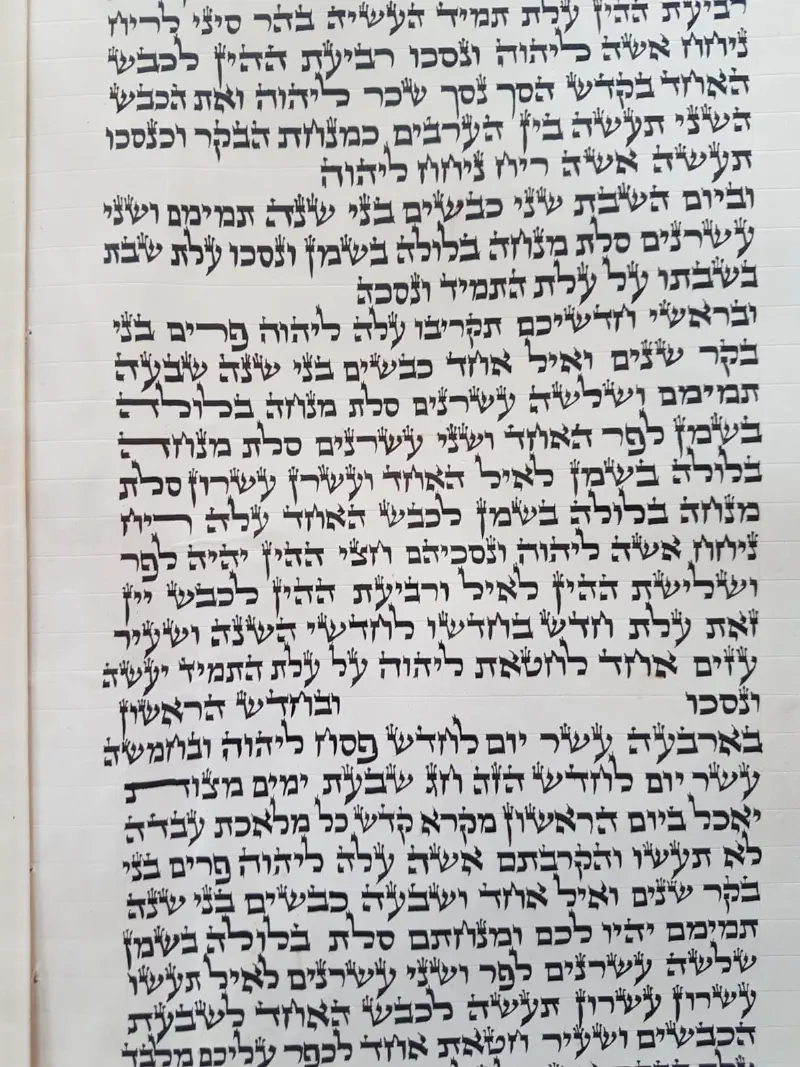 רביעת ההין עלת תמיד העשיה בהר סיני לריח
ניחח אשה ליהוה ונסכו רביעת ההין לכבש
האחד בקדש הסך נסך שכר ליהוה ואת הכבש
השני תעשה בין הערבים כמנחת הבקר וכנסכו
תעשה אשה ריח ניחח ליהוה
וביום השבת שני כבשים בני שנה תמימם ושני
עשרנים סלת מנחה בלולה בשמן ונסכו עלת שבת
בשבתו על עלת התמיד ונסכה
ובראשי חדשיכם תקריבו עלה ליהוה פרים בני
בקר שנים ואיל אחד כבשים בני שנה שבעה
תמימם ושלשה עשרנים סלת מנחה בלולה
בשמן לפר האחד ושני עשרנים סלת מנחה
בלולה בשמן לאיל האחד ועשרן עשרון סלת
מנחה בלולה בשמן לכבש האחד עלה ריח
ניחח אשה ליהוה ונסכיהם חצי ההין יהיה לפר
ושלישת ההין לאיל ורביעת ההין לכבש יין
זאת עלת חדש בחדשו לחדשי השנה ושעיר
עזים אחד לחטאת ליהוה על עלת התמיד יעשה
ונסכו ובחדש הראשון
בארבעה עשר יום לחדש פסח ליהוה ובחמשה
עשר יום לחדש הזה חג שבעת ימים מצות
יאכל ביום הראשון מקרא קדש כל מלאכת עבדה
לא תעשו והקרבתם אשה עלה ליהוה פרים בני
בקר שנים ואיל אחד ושבעה כבשים בני שנה
תמימם יהיו לכם ומנחתם סלת בלולה בשמן
שלשה עשרנים לפר ושני עשרנים לאיל תעשו
עשרון עשרון תעשה לכבש האחד לשבעת
הכבשים ושעיר חטאת אחד לכפר עליכם מלבד